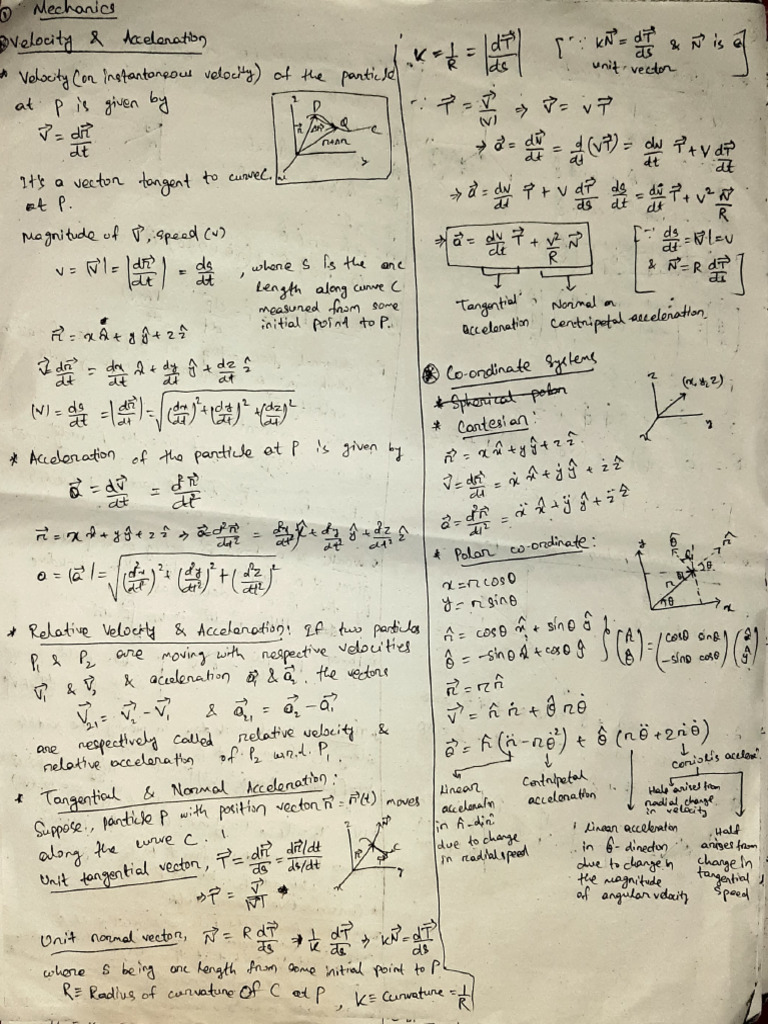 ① Mechanics
Velocity & Acceleration
* Velocity (or instantaneous velocity) of the particle
at P is given by
v⃗ = dr⃗/dt
It's a vector tangent to curve C
at P.
Magnitude of v⃗, speed (v)
v = |v⃗| = |dr⃗/dt| = ds/dt , where s is the arc
length along curve C
measured from some
initial point to P.
r⃗ = x x̂ + y ŷ + z ẑ
v⃗ = dr⃗/dt = dx/dt x̂ + dy/dt ŷ + dz/dt ẑ
|v| = ds/dt = |dr⃗/dt| = √((dx/dt)² + (dy/dt)² + (dz/dt)²)
* Acceleration of the particle at P is given by
a⃗ = dv⃗/dt = d²r⃗/dt²
r⃗ = x x̂ + y ŷ + z ẑ ⇒ a⃗ = d²r⃗/dt² = d²x/dt² x̂ + d²y/dt² ŷ + d²z/dt² ẑ
a = |a⃗| = √((d²x/dt²)² + (d²y/dt²)² + (d²z/dt²)²)
* Relative Velocity & Acceleration: If two particles
P₁ & P₂ are moving with respective velocities
v⃗₁ & v⃗₂ & acceleration a⃗₁ & a⃗₂. the vectors
v⃗₂₁ = v⃗₂ − v⃗₁ & a⃗₂₁ = a⃗₂ − a⃗₁
are respectively called relative velocity &
relative acceleration of P₂ w.r.t. P₁.
* Tangential & Normal Acceleration:
Suppose, particle P with position vector r⃗ = r⃗(t) moves
along the curve C.
Unit tangential vector, T⃗ = dr⃗/ds = (dr⃗/dt)/(ds/dt)
⇒ T⃗ = v⃗/|v⃗|
Unit normal vector, N⃗ = R dT⃗/ds ⇒ 1/K dT⃗/ds ⇒ KN⃗ = dT⃗/ds
where s being arc length from some initial point to P
R ≡ Radius of curvature of C at P, K ≡ Curvature = 1/R
K = 1/R = |dT⃗/ds| [∵ KN⃗ = dT⃗/ds & N⃗ is a
unit vector]
∵ T⃗ = v⃗/|v| ⇒ v⃗ = vT⃗
⇒ a⃗ = dv⃗/dt = d/dt (vT⃗) = dv/dt T⃗ + v dT⃗/dt
⇒ a⃗ = dv/dt T⃗ + v dT⃗/ds ds/dt = dv/dt T⃗ + v² N⃗/R
⇒ a⃗ = dv/dt T⃗ + v²/R N⃗ [∵ ds/dt = |v⃗| = v
& N⃗ = R dT⃗/ds]
Tangential Acceleration
Normal or Centripetal acceleration
Co-ordinate Systems
* Spherical polar
* Cartesian:
(x, y, z)
r⃗ = x x̂ + y ŷ + z ẑ
v⃗ = dr⃗/dt = ẋ x̂ + ẏ ŷ + ż ẑ
a⃗ = d²r⃗/dt² = ẍ x̂ + ÿ ŷ + z̈ ẑ
* Polar co-ordinate:
x = r cosθ
y = r sinθ
r̂ = cosθ x̂ + sinθ ŷ
θ̂ = −sinθ x̂ + cosθ ŷ } (r̂ θ̂) = (cosθ sinθ −sinθ cosθ) (x̂ ŷ)
r⃗ = r r̂
v⃗ = r̂ ṙ + θ̂ r θ̇
a⃗ = r̂ (r̈ − rθ̇²) + θ̂ (rθ̈ + 2ṙθ̇)
Linear
acceleratn
in r̂-dirn
due to change
in radial speed
Centripetal
acceleration
Linear acceleraton
in θ̂- direction
due to change in
the magnitude
of angular velocity
coriolis acceleratn
Half arises from
radial change
in velocity
Half
arises from
change in
tangential
speed